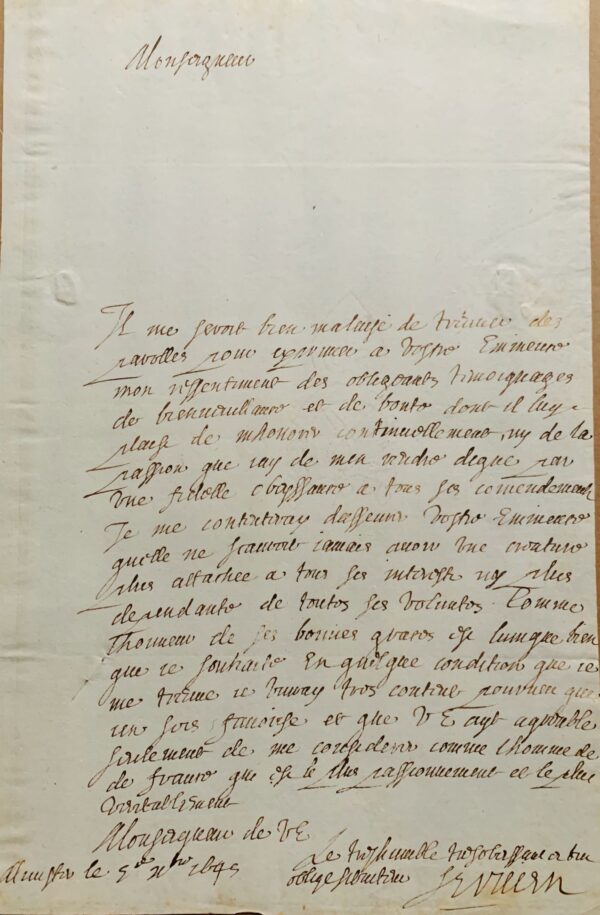 Monseigneur
Il me seroit bien malaisé de treuuer des
parolles pour exprimer a Vostre Eminence
mon ressentiment des obligeants tesmoignages
de bienueuillance et de bonté dont il luy
plaist de mhonorer continuellement, ny de la
passion que iay de men rendre digne par
vne fidelle obeyssance a tous ses comendements
Je me contenteray dasseurer Vostre Eminence
quelle ne scauroit iamais auoir vne creature
plus attachée a tous ses interests ny plus
dependante de toutes ses volontes. Comme
lhonneur de ses bonnes graces est lunique bien
que ie souhaite en quelque condition que ie
me treuue ie viuray tres content pourueu que
ien sois fauorisé et que V E ayt agreable
seulement de me considerer comme lhomme de
de france qui est le plus passionnement et le plus
veritablement
Monseigneur de V E
Munster le 5me xbre 1645
Le treshumble tresobeissant et tres
obligé seruiteur
Servien